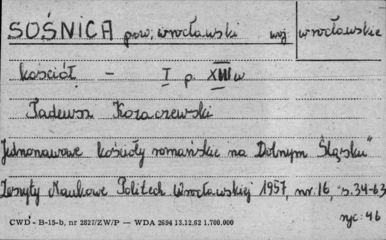 SOŚNICA pow; wrocławski woj wrocławskie
kościół – I p. XIII w
Tadeusz Kozaczewski
Jednonawowe kościoły romańskie na Dolnym Śląsku"
Zeszyty Naukowe Politech Wrocławskiej 1957, nr. 16, s. 34-63
ryc: 46
CWD - B-15-b, nr 2827/ZW/P — WDA 2694 13.12.62 1.700.000